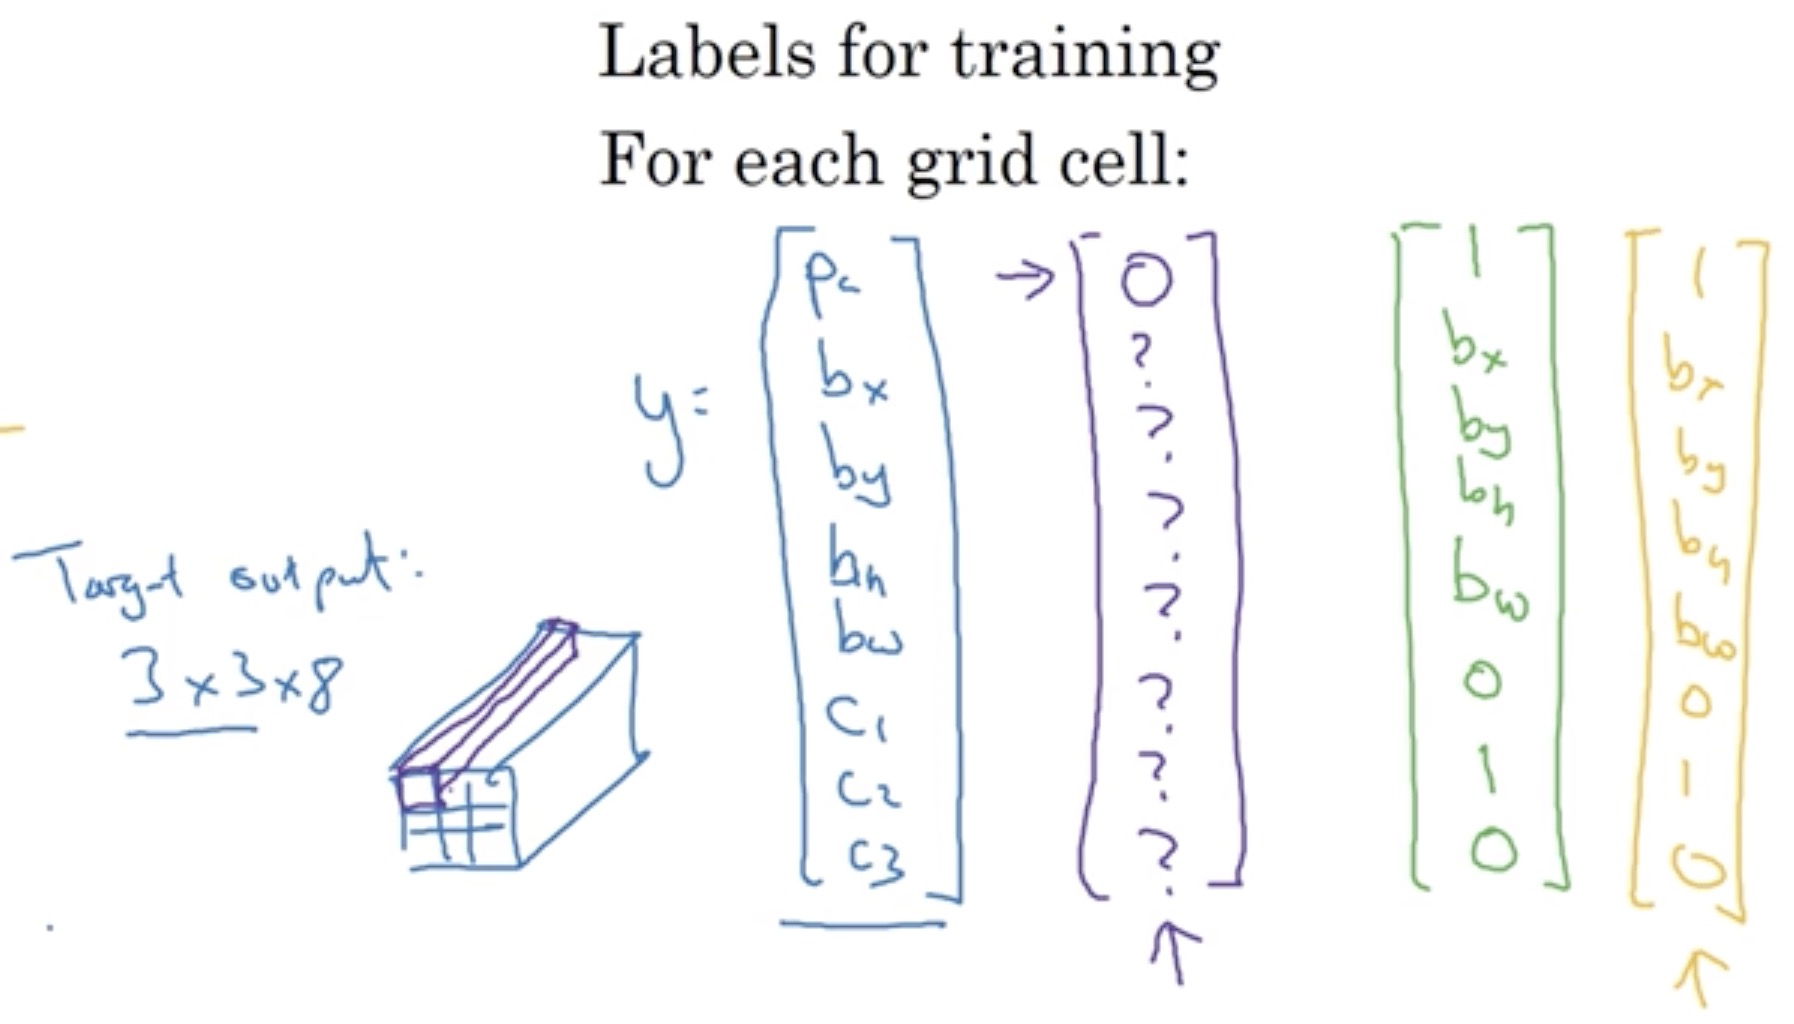 Labels for training
For each grid cell:
y =
Pc
bx
by
bh
bw
C1
C2
C3
→ 0
?
?
?
?
?
?
?
↑
1
bx
by
bh
bw
0
1
0
1
bx
by
bh
bw
0
1
0
↑
Target output:
3 x 3 x 8